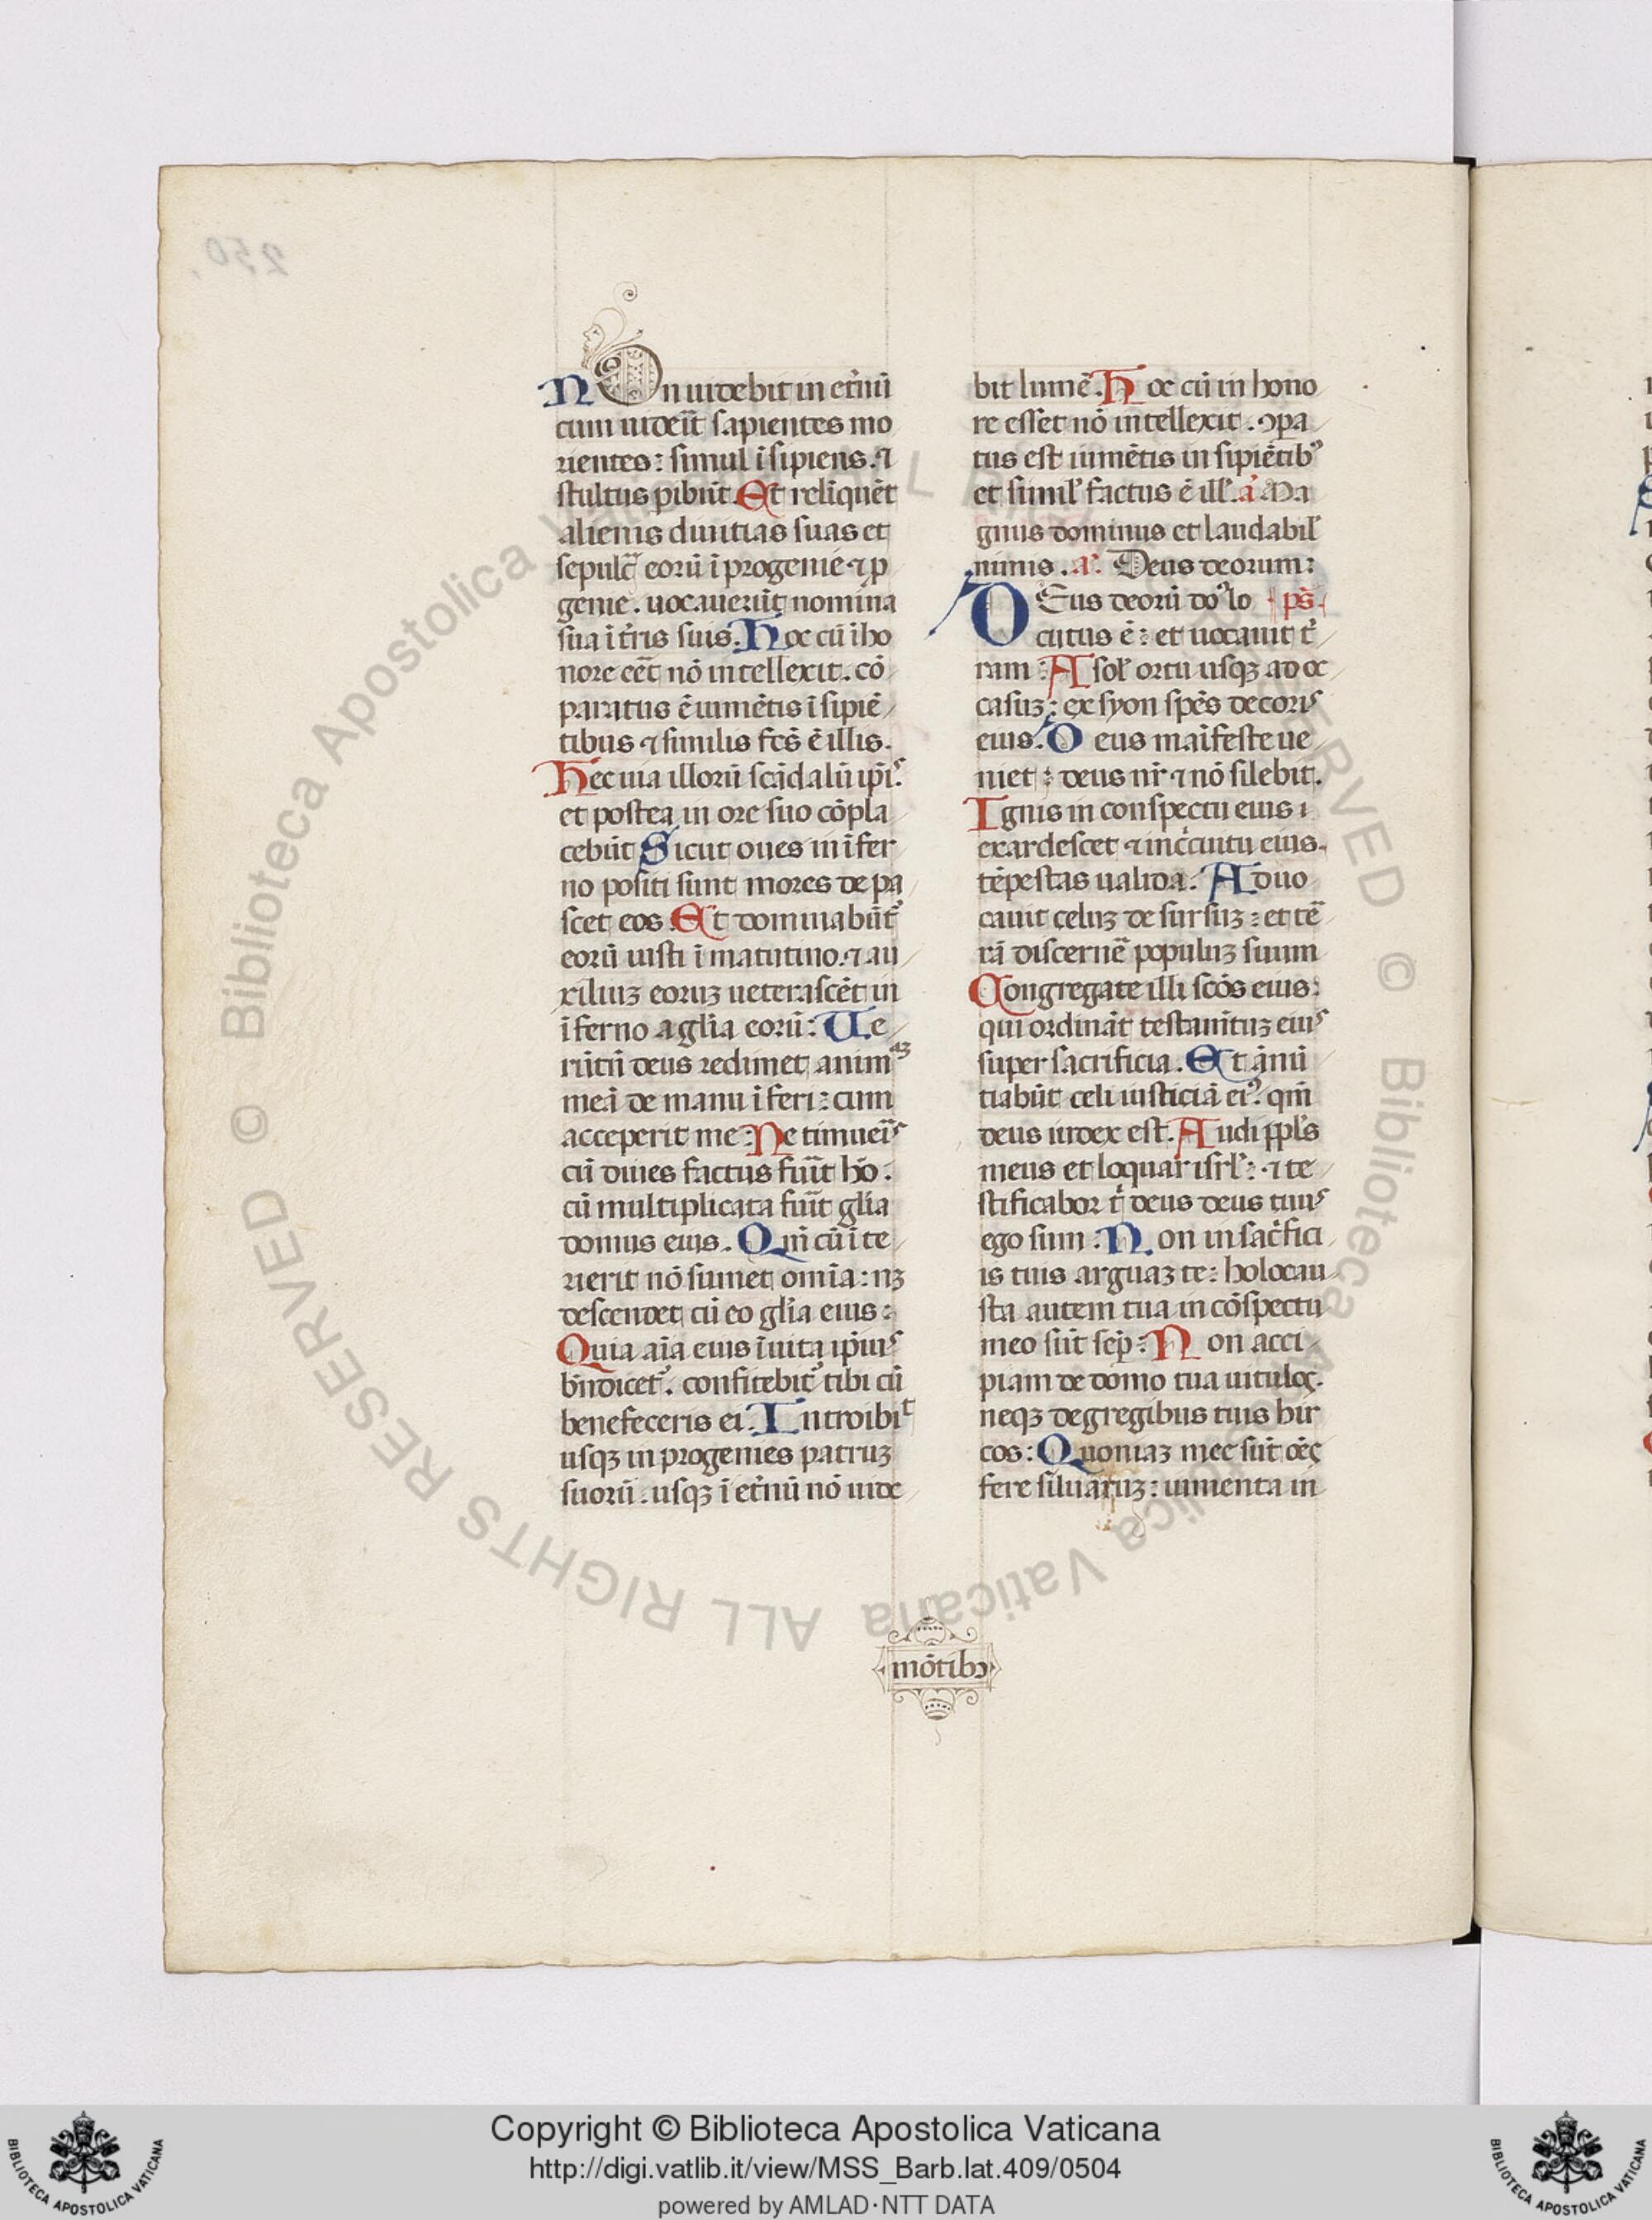 250
NOn uidebit in et̉nũ
cum uideĩt sapientes mo
rientes: simul ĩsipiens. ⁊
stultus ꝑibũt. Et relĩquẽt
alienis diuitias suas et
sepulc̃ eorũ ĩ progeniẽ ⁊ p
genie. uocauerũt nomina
sua ĩ t̉ris suis. Hoc cũ ĩ ho
nore eẽt nõ intellexit. cõ
paratus ẽ iumẽtis ĩsipiẽ
tibus ⁊ similis fcs̃ ẽ illis.
Hec uia illorũ scãdalũ ip̃is
et postea in ore suo cõpla
cebũt Sicut oues in ĩfer
no positi sunt mors depa
scet eos Et dominabũt᷑
eorũ iusti ĩ matutino. ⁊ au
xiliuꝫ eoruꝫ ueterascẽt in
ĩferno a gl̃ia eorũ: Ve
rũtñ deus redimet animaꝫ
meã de manu ĩferi: cum
acceperit me: Ne timueĩs
cũ diues factus fuĩt hõ:
cũ multiplicata fuĩt gl̃ia
domus eius. Qm̃ cũ ĩte
rierit nõ sumet om̃ia: nꝫ
descendet cũ eo gl̃ia eius:
Quia aĩa eius ĩ uita ip̃ius
bñdicet᷑. confitebit᷑ tibi cũ
benefeceris ei. Introibit
usqꝫ in progenies patruꝫ
suorũ. usqꝫ ĩ et̉nũ nõ uide
bit lumẽ. Hoc cũ in hono
re esset nõ intellexit. ꝯpa
tus est iumẽtis insipiẽtibꝰ
et simil᷑ factus ẽ ill᷑. a᷑ Ma
gnus dominus et laudabil᷑
nimis. a᷑. Deus deorum:
DEus deorũ do᷑ lo ps̃.
cutus ẽ: et uocauit t᷑
ram: A sol᷑ ortu usqꝫ ad oc
casuꝫ: ex syon spẽs decoris
eius. Deus maĩfeste ue
niet: deus nr̃ ⁊ nõ silebit.
Ignis in conspectu eius
exardescet ⁊ in c̉cuitu eius
tẽpestas ualida. Aduo
cauit celuꝫ de sursuꝫ: et tẽ
rã discernẽ populuꝫ suum
Congregate illi scõs eius:
qui ordinãt testam̃tuꝫ eius
super sacrificia. Et ãnũ
tiabũt celi iusticiã eiꝰ. qm̃
deus iudex est. Audi ppl᷑s
meus et loquar isrl᷑: ⁊ te
stificabor t̉ deus deus tuus
ego sum: Non in sac̉fici
is tuis arguaꝫ te: holocau
sta autem tua in cõspectu
meo sũt sep̃: Non acci
piam de domo tua uitulos.
neqꝫ de gregibus tuis hir
cos: Quoniaꝫ mee sũt oẽs
fere siluaruꝫ: iumenta in
mõtibꝫ
Copyright © Biblioteca Apostolica Vaticana
http://digi.vatlib.it/view/MSS_Barb.lat.409/0504
powered by AMLAD·NTT DATA
BIBLIOTECA APOSTOLICA VATICANA
BIBLIOTECA APOSTOLICA VATICANA
© Biblioteca Apostolica Vaticana ALL RIGHTS RESERVED © Biblioteca Apostolica Vaticana ALL RIGHTS RESERVED